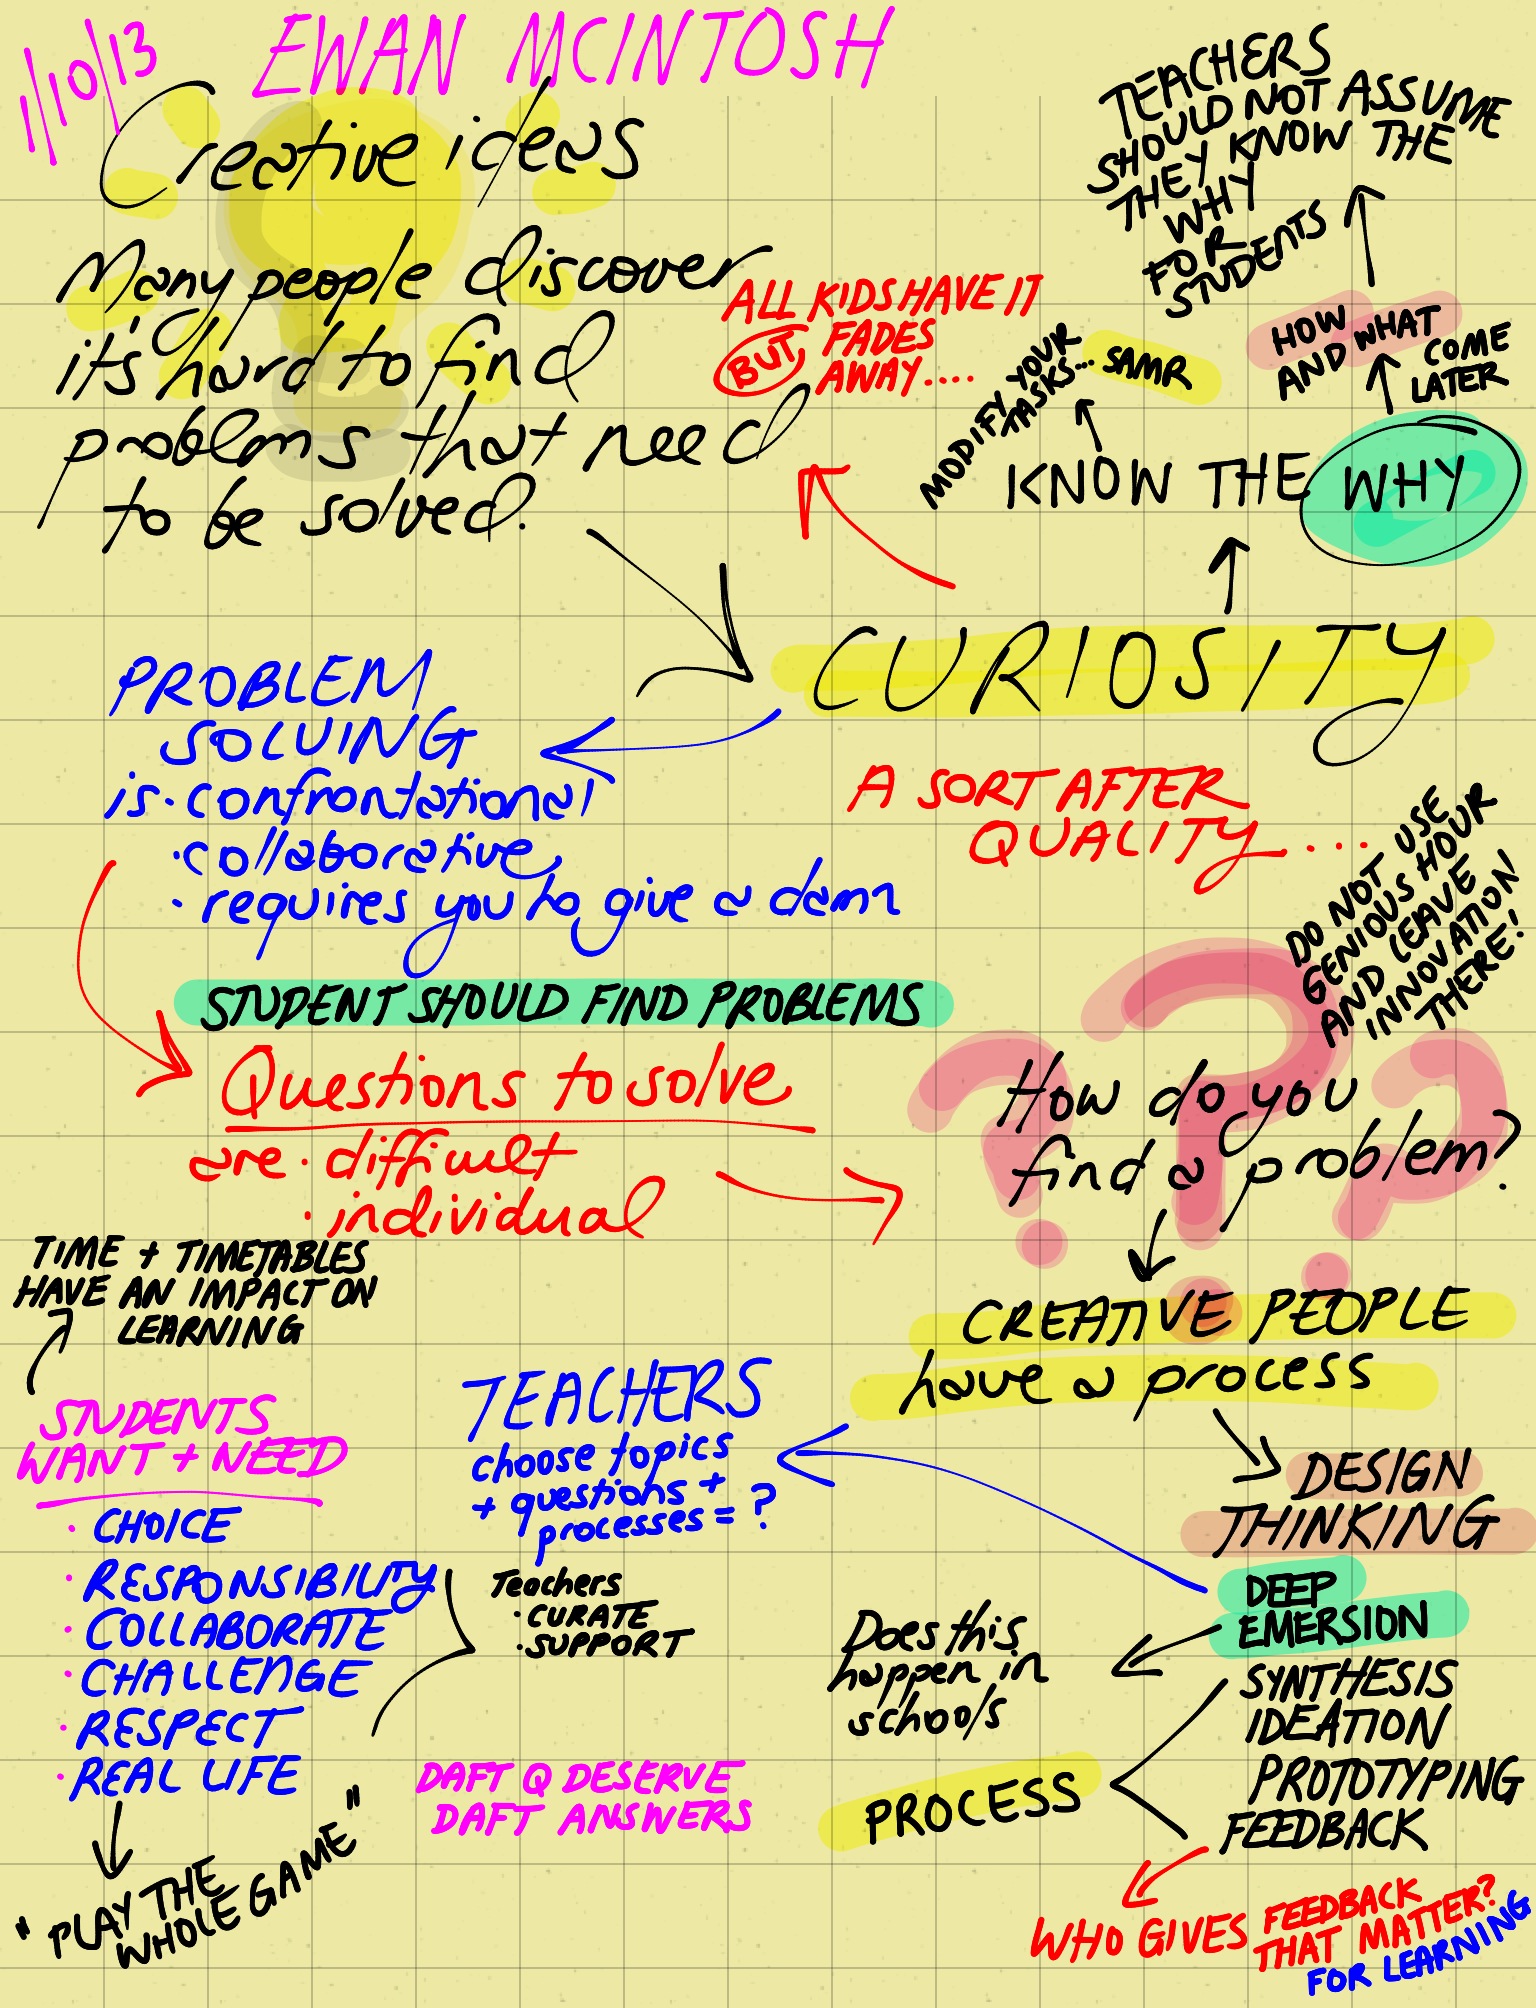 1/10/13
EWAN MCINTOSH
Creative ideas
Many people discover
it's hard to find
problems that need
to be solved.
ALL KIDS HAVE IT
BUT FADES
AWAY....
TEACHERS
SHOULD NOT ASSUME
THEY KNOW THE
WHY
FOR
STUDENTS
HOW
AND WHAT
COME
LATER
MODIFY YOUR
TASKS... SAMR
KNOW THE WHY
CURIOSITY
A SORT AFTER
QUALITY....
PROBLEM
SOLVING
is · confrontational
· collaborative
· requires you to give a damn
STUDENT SHOULD FIND PROBLEMS
Questions to solve
are · difficult
· individual
DO NOT USE
GENIOUS HOUR
AND LEAVE
INNOVATION
THERE!
How do you
find a problem?
CREATIVE PEOPLE
have a process
DESIGN
THINKING
DEEP
EMERSION
SYNTHESIS
IDEATION
PROTOTYPING
FEEDBACK
PROCESS
Does this
happen in
schools
WHO GIVES FEEDBACK
THAT MATTER?
FOR LEARNING
TEACHERS
choose topics
+ questions +
processes = ?
Teachers
· CURATE
· SUPPORT
DAFT Q DESERVE
DAFT ANSWERS
TIME + TIMETABLES
HAVE AN IMPACT ON
LEARNING
STUDENTS
WANT + NEED
· CHOICE
· RESPONSIBILITY
· COLLABORATE
· CHALLENGE
· RESPECT
· REAL LIFE
"PLAY THE
WHOLE GAME"